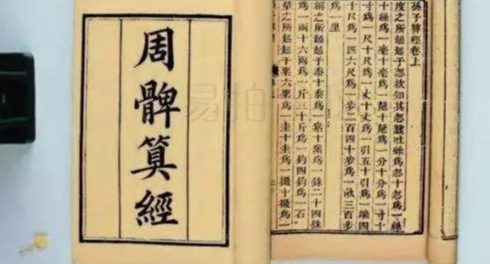 周髀算經
孫子算經卷上
度之所起起於忽欲知其忽蠶吐絲爲忽十忽爲一
絲十絲爲一毫十毫爲一氂十氂爲一分十分爲一寸
十寸爲一尺十尺爲一丈十丈爲一引五十引爲一端四
十尺爲一匹六尺爲一步二百四十步爲一畝三百步
爲一里
稱之所起起於黍十黍爲一絫十絫爲一銖二十四銖
爲一兩十六兩爲一斤三十斤爲一鈞四鈞爲一石
量之所起起於粟六粟爲一圭十圭爲一撮十撮爲一
易拍